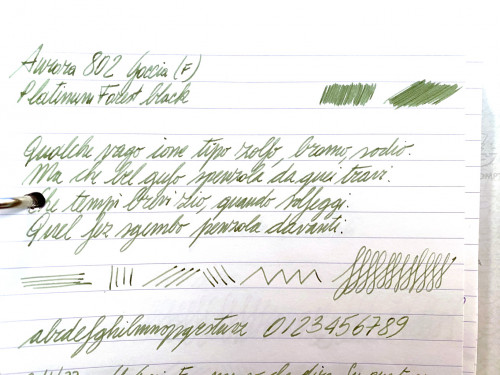 Aurora 802 Goccia (F)
Platinum Forest black
Qualche vago ione tipo zolfo, bromo, sodio.
Ma che bel gufo spenzola da quei travi.
Che tempi brevi zio, quando solfeggi.
Quel fez sgembo penzola davanti.
abcdefghilmnopqrstuvz 0123456789